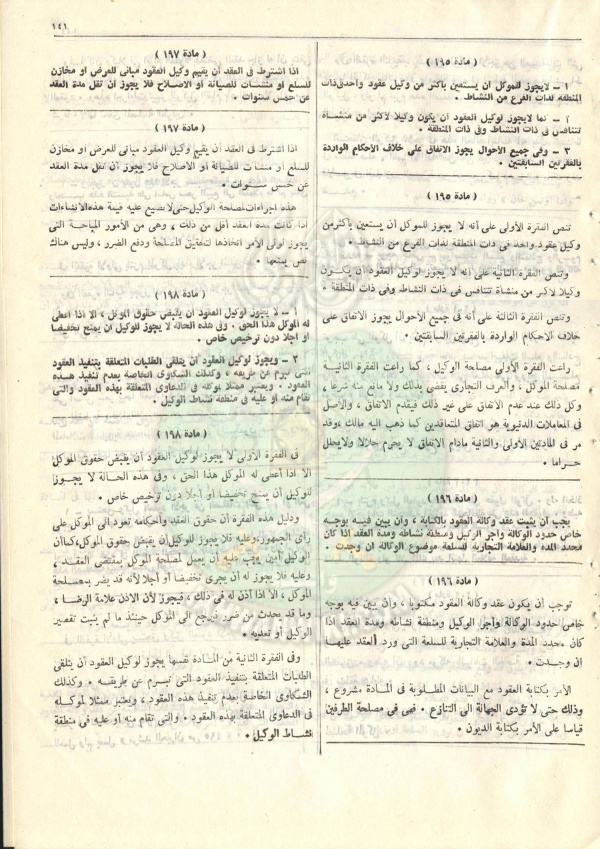 ١٤١
( مادة ١٩٥ )
١ – لايجوز للموكل أن يستعين باكثر من وكيل عقود واحد فى ذات
المنطقة لذات الفرع من النشاط .
٢ – كما لايجوز لوكيل العقود ان يكون وكيلا لاكثر من منشاة
تتنافس فى ذات النشاط وفى ذات المنطقة .
٣ – وفى جميع الأحوال يجوز الاتفاق على خلاف الأحكام الواردة
بالفقرتين السابقتين .
( مادة ١٩٥ )
تنص الفقرة الأولى على أنه لا يجوز للموكل أن يستعين بأكثر من
وكيل عقود واحد فى ذات المنطقة لذات الفرع من النشاط .
وتنص الفقرة الثانية على أنه لا يجوز لوكيل العقود أن يكون
وكيلا لأكثر من منشأة تتنافس فى ذات النشاط وفى ذات المنطقة .
وتنص الفقرة الثالثة على أنه فى جميع الأحوال يجوز الاتفاق على
خلاف الاحكام الواردة بالفقرتين السابقتين .
راعت الفقرة الأولى مصلحة الوكيل ، كما راعت الفقرة الثانية
مصلحة الموكل ، والعرف التجارى يقضى بذلك ولا مانع منه شرعا ،
وكل ذلك عند عدم الاتفاق على غير ذلك فيقدم الاتفاق ، والأصل
فى المعاملات الدنيوية هو اتفاق المتعاقدين كما ذهب اليه مالك ، وقد
مر فى المادتين الأولى والثانية مادام الاتفاق لا يحرم حلالا ولا يحلل
حراما .
( مادة ١٩٦ )
يجب أن يثبت عقد وكالة العقود بالكتابة ، وان يبين فيه بوجه
خاص حدود الوكالة وأجر الوكيل ومنطقة نشاطه ومدة العقد اذا كان
محدد المدة والعلامة التجارية للسلعة موضوع الوكالة ان وجدت .
( مادة ١٩٦ )
توجب أن يكون عقد وكالة العقود مكتوبا ، وان يبين فيه بوجه
خاص حدود الوكالة وأجر الوكيل ومنطقة نشاطه ومدة العقد اذا
كان محدد المدة والعلامة التجارية للسلعة التى ورد العقد عليها
ان وجدت .
الأمر بكتابة العقود مع البيانات المطلوبة فى المادة مشروع ،
وذلك حتى لا تؤدى الجهالة الى التنازع . فهى فى مصلحة الطرفين
قياسا على الأمر بكتابة الديون .
( مادة ١٩٧ )
اذا اشترط فى العقد أن يقيم وكيل العقود مبانى للعرض أو مخازن
للسلع او منشآت للصيانة أو الاصلاح فلا يجوز أن تقل مدة العقد
عن خمس سنوات .
( مادة ١٩٧ )
اذا اشترط فى العقد أن يقيم وكيل العقود مبانى للعرض أو مخازن
للسلع أو منشآت للصيانة أو الاصلاح فلا يجوز أن تقل مدة العقد
عن خمس سنوات .
هذه اجراءات لمصلحة الوكيل حتى لا تضيع عليه قيمة هذه الانشاءات
اذا كانت مدة العقد أقل من ذلك ، وهى من الأمور المباحة التى
يجوز لولى الأمر اتخاذها لتحقيق المصلحة ودفع الضرر ، وليس هناك
نص يمنعها .
( مادة ١٩٨ )
١ – لا يجوز لوكيل العقود أن يقبض حقوق الموكل ، الا اذا أعطى
له الموكل هذا الحق . وفى هذه الحالة لا يجوز للوكيل أن يمنح تخفيضا
او اجلا دون ترخيص خاص .
٢ – ويجوز لوكيل العقود أن يتلقى الطلبات المتعلقة بتنفيذ العقود
التى تبرم عن طريقه ، وكذلك الشكاوى الخاصة بعدم تنفيذ هذه
العقود . ويعتبر ممثلا لموكله فى الدعاوى المتعلقة بهذه العقود والتى
تقام منه أو عليه فى منطقة نشاط الوكيل .
( مادة ١٩٨ )
فى الفقرة الأولى لا يجوز لوكيل العقود أن يقبض حقوق الموكل
الا اذا أعطى له الموكل هذا الحق ، وفى هذه الحالة لا يجوز
للوكيل أن يمنح تخفيضا أو أجلا دون ترخيص خاص .
ودليل هذه الفقرة أن حقوق العقد وأحكامه تعود الى الموكل على
رأى الجمهور، وعليه فلا يجوز للوكيل أن يقبض حقوق الموكل ، كما أن
الوكيل أمين يجب عليه أن يعمل لمصلحة الموكل بمقتضى العقد ،
وعليه فلا يجوز له أن يجرى تخفيضا أو أجلا لأنه قد يضر بمصلحة
الموكل ، الا اذا أذن له فى ذلك ، فيجوز لأن الاذن علامة الرضا ،
وما قد يحدث من ضرر فيرجع الى الموكل حينئذ ما لم يثبت تقصير
الوكيل أو تعديه .
وفى الفقرة الثانية من المادة نفسها يجوز لوكيل العقود أن يتلقى
الطلبات المتعلقة بتنفيذ العقود التى تبرم عن طريقه . وكذلك
الشكاوى الخاصة بعدم تنفيذ هذه العقود ، ويعتبر ممثلا لموكله
فى الدعاوى المتعلقة بهذه العقود . والتى تقام منه أو عليه فى منطقة
نشاط الوكيل .